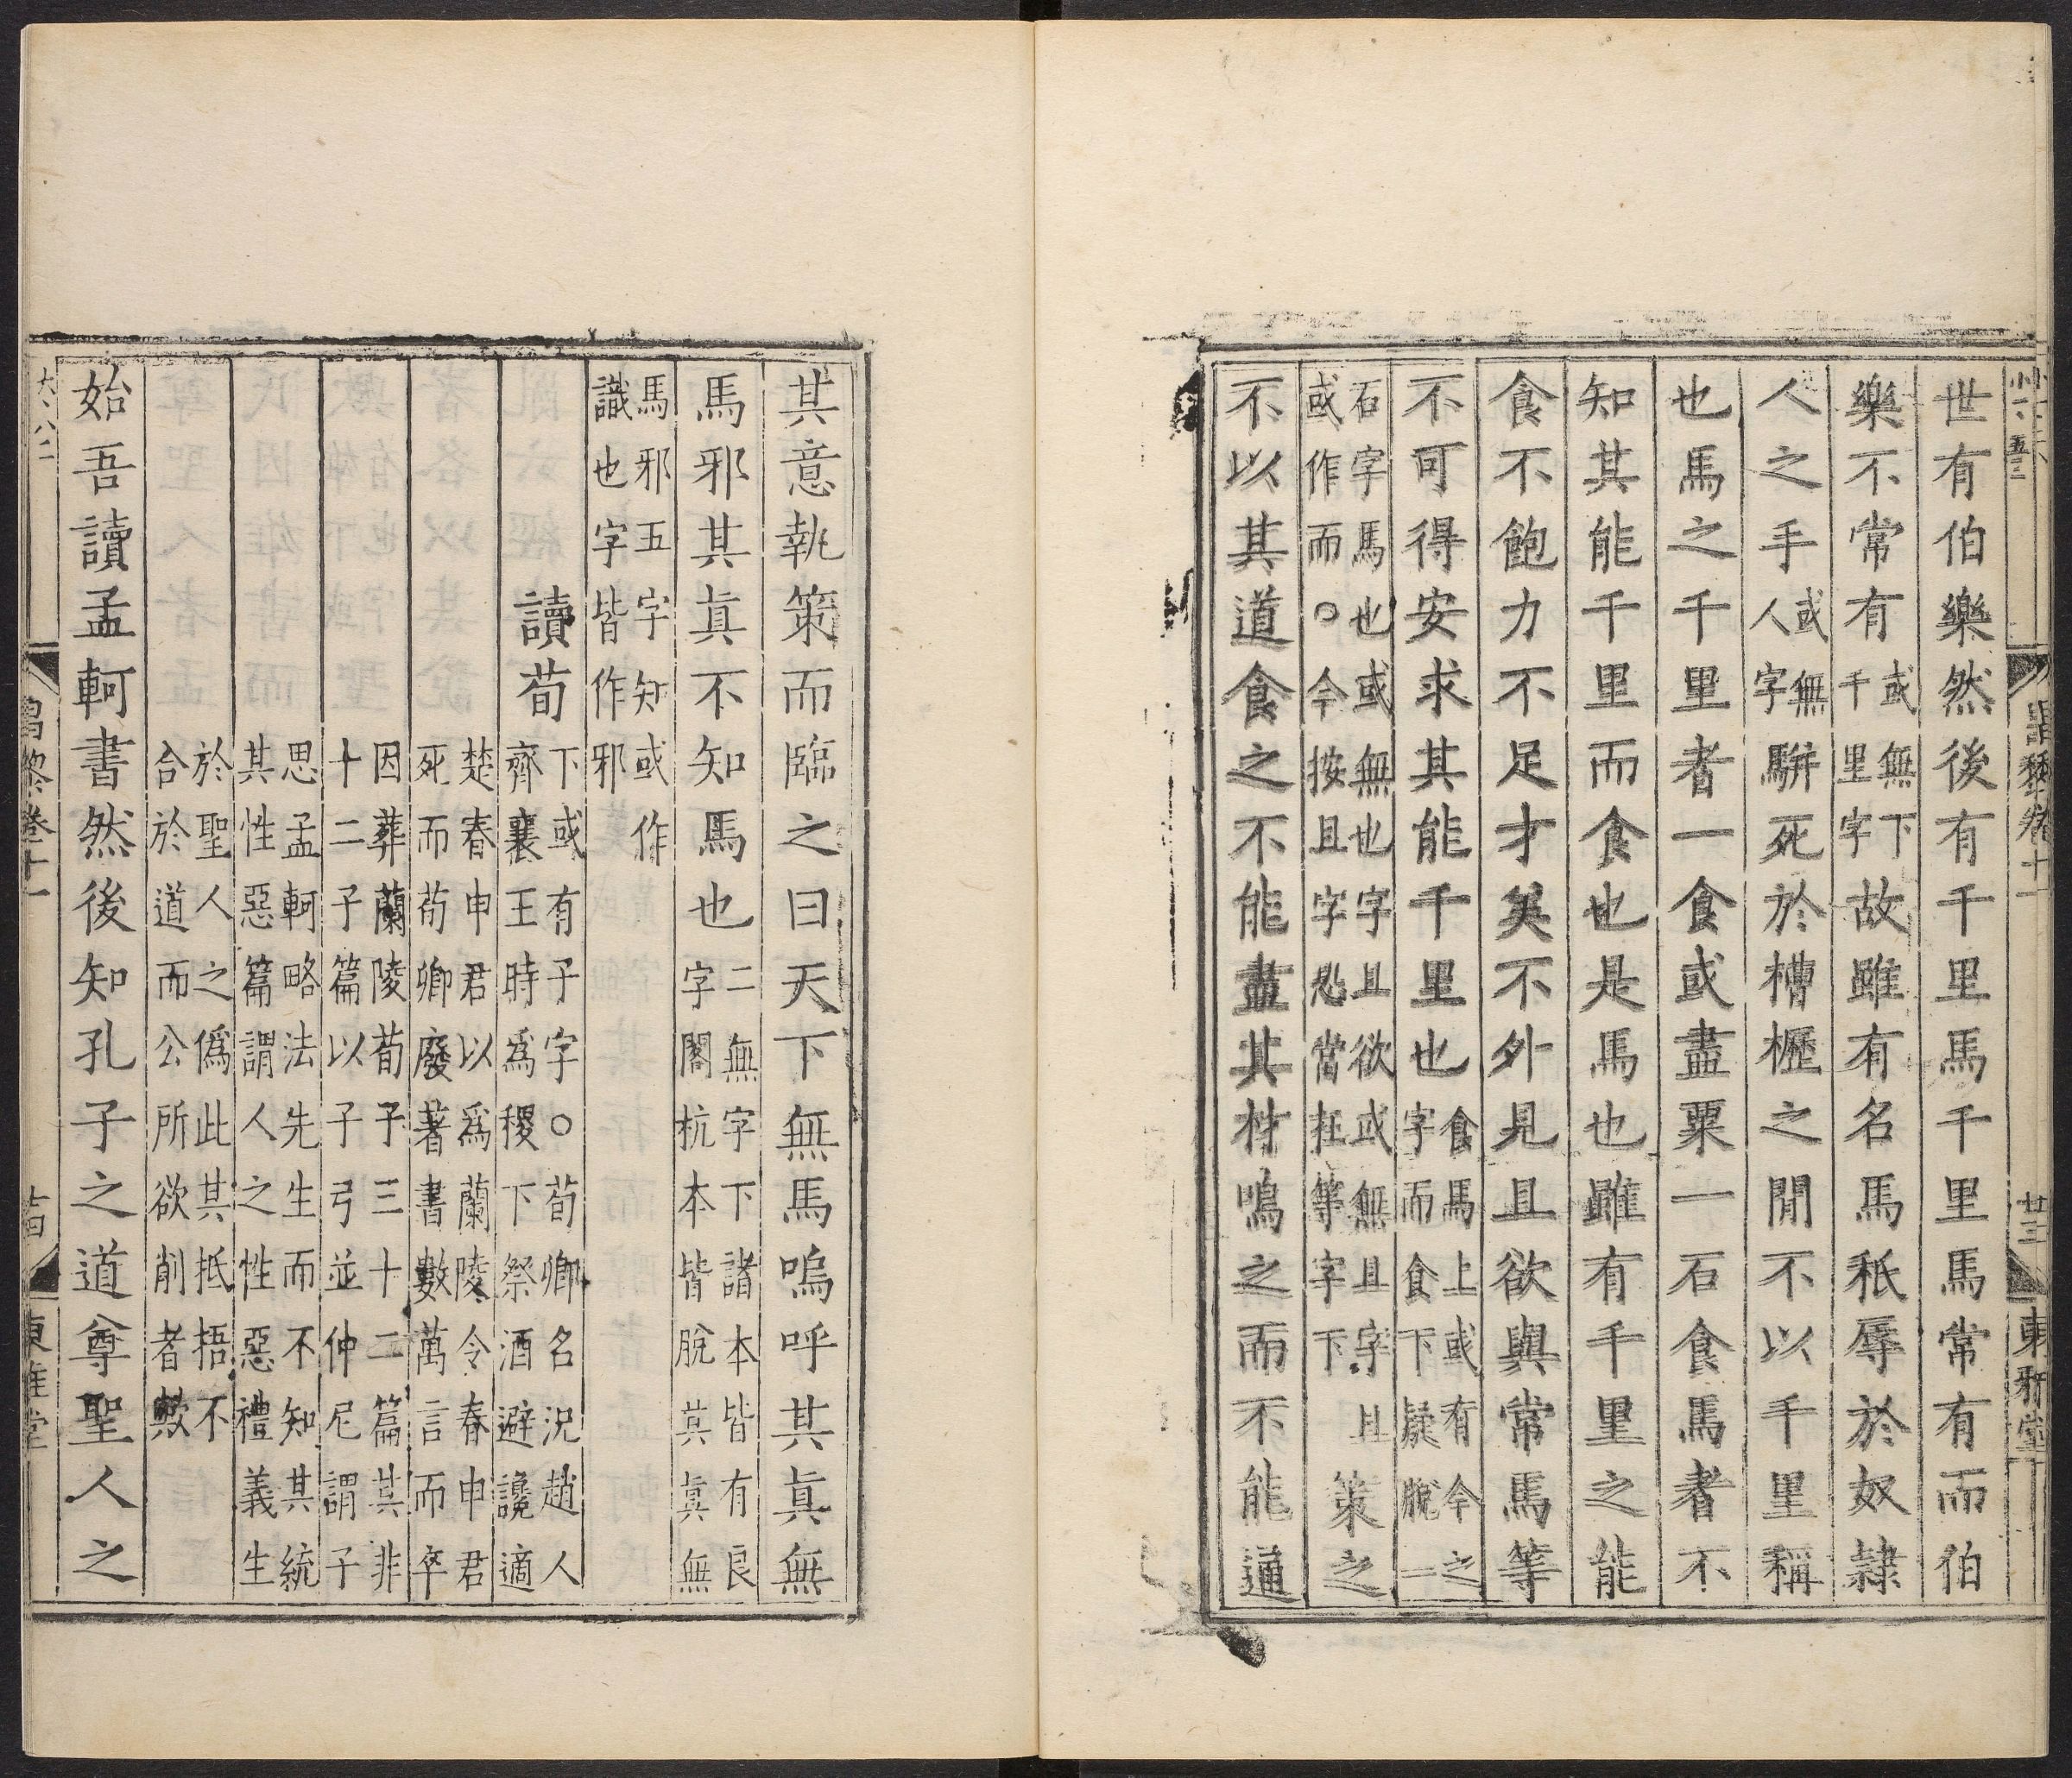 世有伯樂然後有千里馬千里馬常有而伯
樂不常有或無下千里字故雖有名馬秖辱於奴隸
人之手或無人字駢死於槽櫪之閒不以千里稱
也馬之千里者一食或盡粟一石食馬者不
知其能千里而食也是馬也雖有千里之能
食不飽力不足才美不外見且欲與常馬等
不可得安求其能千里也食馬上或有今之字而食下疑脫一
石字馬也或無也字且欲或無且字且或作而○今按且字恐當在等字下策之
不以其道食之不能盡其材鳴之而不能通
昌黎卷十一
廿三
東雅堂
其意執策而臨之曰天下無馬嗚呼其眞無
馬邪其眞不知馬也二無字下諸本皆有良字閣杭本皆脫其眞無
馬邪五字知或作識也字皆作邪
讀荀下或有子字○荀卿名況趙人齊襄王時爲稷下祭酒避讒適
楚春申君以爲蘭陵令春申君死而荀卿廢著書數萬言而卒
因葬蘭陵荀子三十二篇其非十二子篇以子弓並仲尼謂子
思孟軻略法先生而不知其統其性惡篇謂人之性惡禮義生
於聖人之僞此其抵捂不合於道而公所欲削者歟
始吾讀孟軻書然後知孔子之道尊聖人之
大八二
昌黎卷十一
廿四
東雅堂